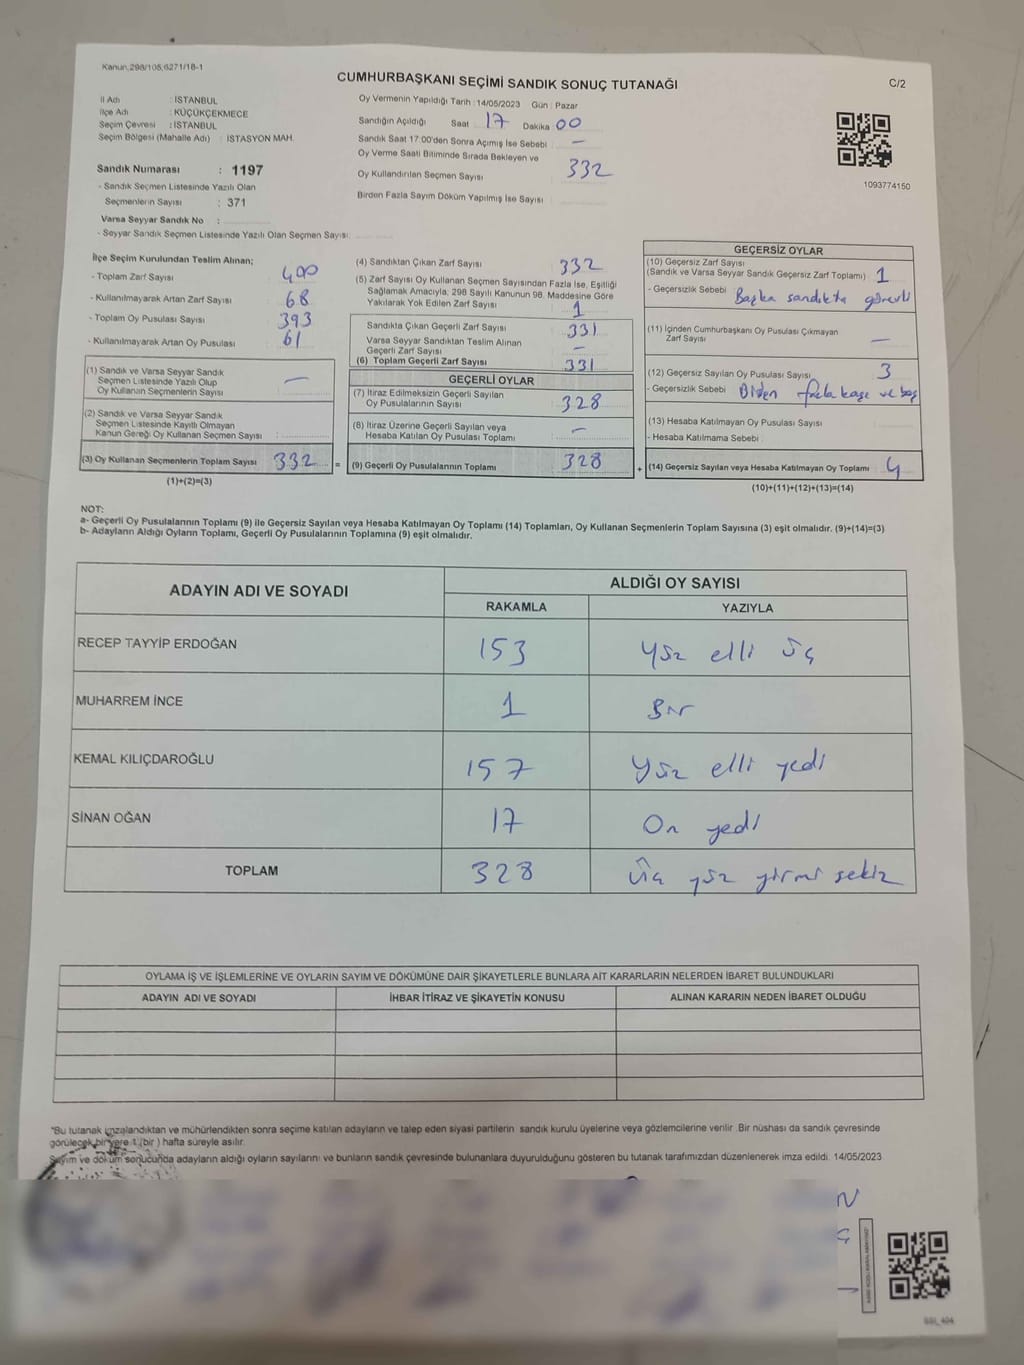 Kanun:298/105;6271/18-1
CUMHURBAŞKANI SEÇİMİ SANDIK SONUÇ TUTANAĞI
C/2
İl Adı : İSTANBUL
İlçe Adı : KÜÇÜKÇEKMECE
Seçim Çevresi : İSTANBUL
Seçim Bölgesi (Mahalle Adı) : İSTASYON MAH.
Sandık Numarası : 1197
- Sandık Seçmen Listesinde Yazılı Olan
Seçmenlerin Sayısı : 371
Varsa Seyyar Sandık No :
- Seyyar Sandık Seçmen Listesinde Yazılı Olan Seçmen Sayısı:
Oy Vermenin Yapıldığı Tarih : 14/05/2023 Gün : Pazar
Sandığın Açıldığı Saat 17 Dakika 00
Sandık Saat 17:00'den Sonra Açımış İse Sebebi : —
Oy Verme Saati Bitiminde Sırada Bekleyen ve
Oy Kullandırılan Seçmen Sayısı : 332
Birden Fazla Sayım Döküm Yapılmış İse Sayısı :
1093774150
İlçe Seçim Kurulundan Teslim Alınan;
- Toplam Zarf Sayısı : 400
- Kullanılmayarak Artan Zarf Sayısı : 68
- Toplam Oy Pusulası Sayısı : 393
- Kullanılmayarak Artan Oy Pusulası : 61
(1) Sandık ve Varsa Seyyar Sandık
Seçmen Listesinde Yazılı Olup
Oy Kullanan Seçmenlerin Sayısı : —
(2) Sandık ve Varsa Seyyar Sandık
Seçmen Listesinde Kayıtlı Olmayan
Kanun Gereği Oy Kullanan Seçmen Sayısı :
(3) Oy Kullanan Seçmenlerin Toplam Sayısı : 332
(1)+(2)=(3)
=
(4) Sandıktan Çıkan Zarf Sayısı : 332
(5) Zarf Sayısı Oy Kullanan Seçmen Sayısından Fazla İse, Eşitliği
Sağlamak Amacıyla, 298 Sayılı Kanunun 98. Maddesine Göre
Yakılarak Yok Edilen Zarf Sayısı : 1
Sandıkta Çıkan Geçerli Zarf Sayısı : 331
Varsa Seyyar Sandıktan Teslim Alınan
Geçerli Zarf Sayısı : —
(6) Toplam Geçerli Zarf Sayısı : 331
GEÇERLİ OYLAR
(7) İtiraz Edilmeksizin Geçerli Sayılan
Oy Pusulalarının Sayısı : 328
(8) İtiraz Üzerine Geçerli Sayılan veya
Hesaba Katılan Oy Pusulası Toplamı : —
(9) Geçerli Oy Pusulalarının Toplamı : 328
+
GEÇERSİZ OYLAR
(10) Geçersiz Zarf Sayısı
(Sandık ve Varsa Seyyar Sandık Geçersiz Zarf Toplamı) : 1
- Geçersizlik Sebebi : Başka sandıkta görevli
(11) İçinden Cumhurbaşkanı Oy Pusulası Çıkmayan
Zarf Sayısı : —
(12) Geçersiz Sayılan Oy Pusulası Sayısı : 3
- Geçersizlik Sebebi : Birden fazla kaşe ve boş
(13) Hesaba Katılmayan Oy Pusulası Sayısı :
- Hesaba Katılmama Sebebi :
(14) Geçersiz Sayılan veya Hesaba Katılmayan Oy Toplamı : 4
(10)+(11)+(12)+(13)=(14)
NOT:
a- Geçerli Oy Pusulalarının Toplamı (9) ile Geçersiz Sayılan veya Hesaba Katılmayan Oy Toplamı (14) Toplamları, Oy Kullanan Seçmenlerin Toplam Sayısına (3) eşit olmalıdır. (9)+(14)=(3)
b- Adayların Aldığı Oyların Toplamı, Geçerli Oy Pusulalarının Toplamına (9) eşit olmalıdır.
ADAYIN ADI VE SOYADI
ALDIĞI OY SAYISI
RAKAMLA YAZIYLA
RECEP TAYYİP ERDOĞAN 153 Yüz elli üç
MUHARREM İNCE 1 Bir
KEMAL KILIÇDAROĞLU 157 Yüz elli yedi
SİNAN OĞAN 17 On yedi
TOPLAM 328 Üç yüz yirmi sekiz
OYLAMA İŞ VE İŞLEMLERİNE VE OYLARIN SAYIM VE DÖKÜMÜNE DAİR ŞİKAYETLERLE BUNLARA AİT KARARLARIN NELERDEN İBARET BULUNDUKLARI
ADAYIN ADI VE SOYADI İHBAR İTİRAZ VE ŞİKAYETİN KONUSU ALINAN KARARIN NEDEN İBARET OLDUĞU
*Bu tutanak imzalandıktan ve mühürlendikten sonra seçime katılan adayların ve talep eden siyasi partilerin sandık kurulu üyelerine veya gözlemcilerine verilir. Bir nüshası da sandık çevresinde
görülecek bir yere 1 (bir ) hafta süreyle asılır.
Sayım ve döküm sonucunda adayların aldığı oyların sayılarını ve bunların sandık çevresinde bulunanlara duyurulduğunu gösteren bu tutanak tarafımızdan düzenlenerek imza edildi. 14/05/2023